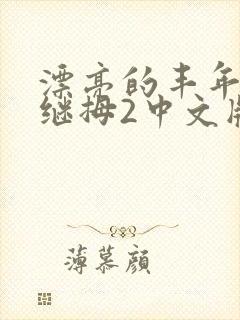 漂亮的丰年
继拇2中文版
薄慕顔